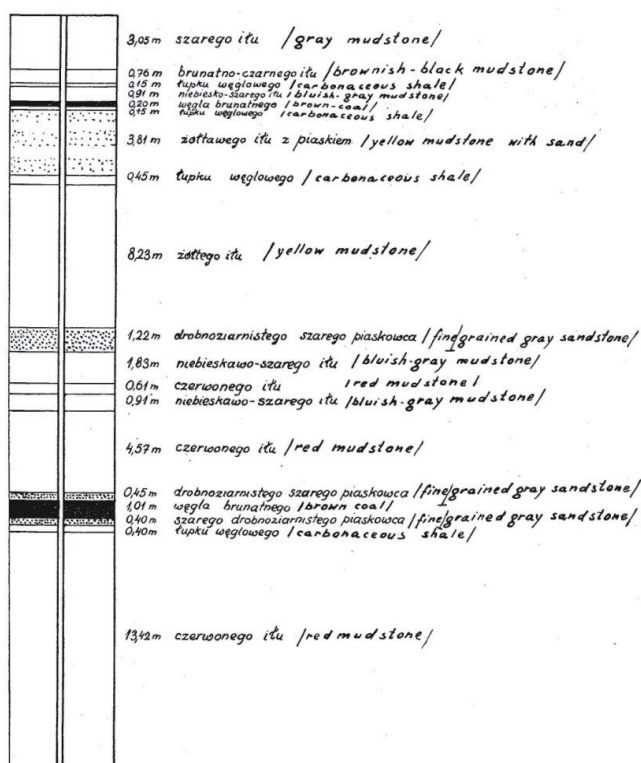 3,05m szarego iłu /gray mudstone/
0,76m brunatno-czarnego iłu /brownish-black mudstone/
0,15m łupku węglowego /carbonaceous shale/
0,91m niebiesko-szarego iłu /bluish-gray mudstone/
0,20m węgla brunatnego /brown-coal/
0,15m łupku węglowego /carbonaceous shale/
3,81m żółtawego iłu z piaskiem /yellow mudstone with sand/
0,45m łupku węglowego /carbonaceous shale/
8,23m żółtego iłu /yellow mudstone/
1,22m drobnoziarnistego szarego piaskowca /fine/grained gray sandstone/
1,83m niebieskawo-szarego iłu /bluish-gray mudstone/
0,61m czerwonego iłu /red mudstone/
0,91m niebieskawo-szarego iłu /bluish-gray mudstone/
4,57m czerwonego iłu /red mudstone/
0,45m drobnoziarnistego szarego piaskowca /fine/grained gray sandstone/
1,01m węgla brunatnego /brown coal/
0,40m szarego drobnoziarnistego piaskowca /fine/grained gray sandstone/
0,40m łupku węglowego /carbonaceous shale/
13,42m czerwonego iłu /red mudstone/